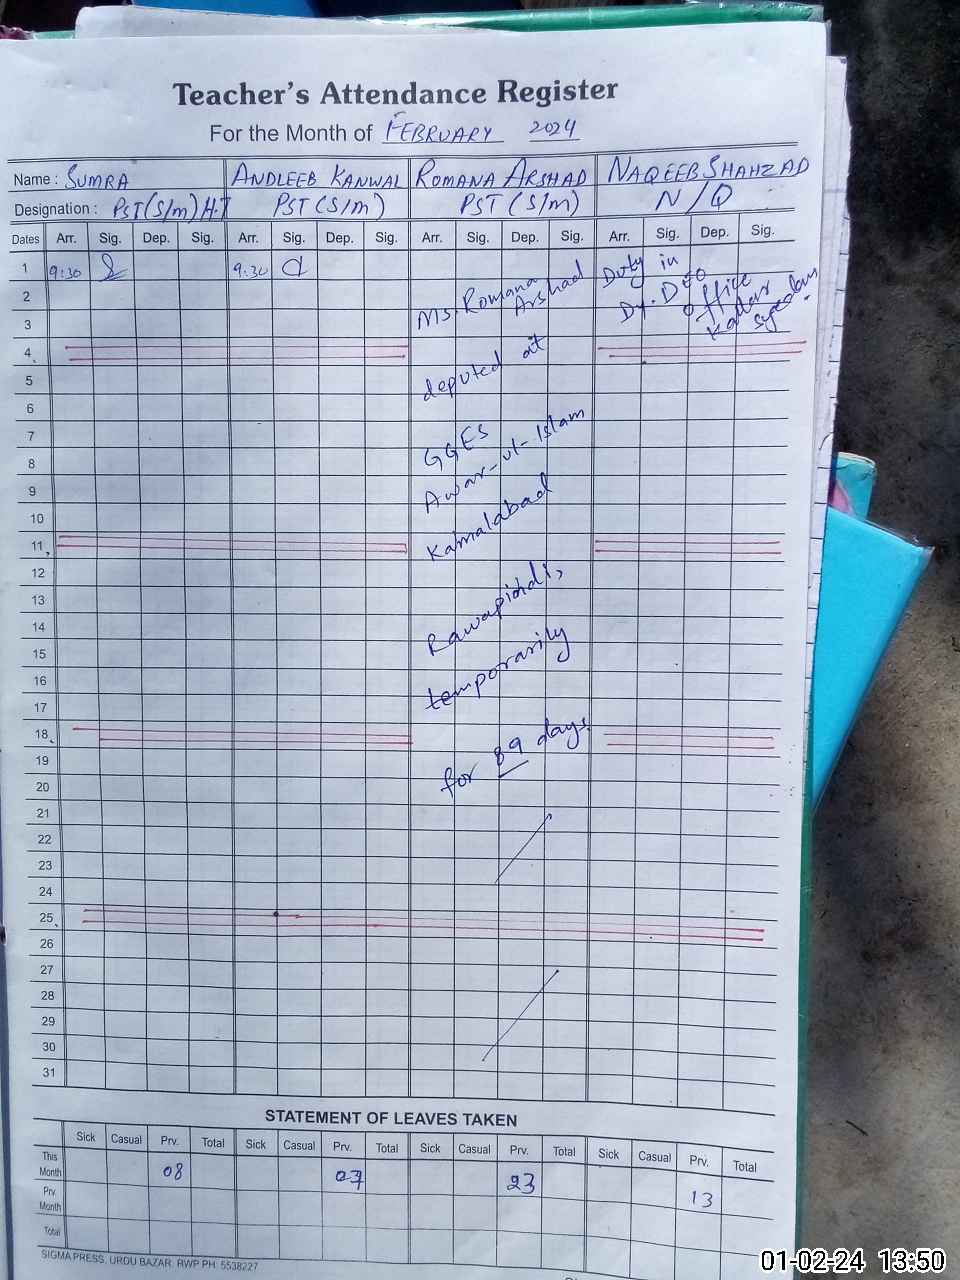 Teacher's Attendance Register
For the Month of FEBRUARY 2024
Name : SUMRA ANDLEEB KANWAL ROMANA ARSHAD NAQEEB SHAHZAD
Designation : PST(S/m) H.T PST (S/m) PST (S/m) N/Q
Dates Arr. Sig. Dep. Sig. Arr. Sig. Dep. Sig. Arr. Sig. Dep. Sig. Arr. Sig. Dep. Sig.
1 9:30 9:30
2
3
4
5
6
7
8
9
10
11
12
13
14
15
16
17
18
19
20
21
22
23
24
25
26
27
28
29
30
31
Ms. Romana
Arshad
deputed at
GGES
Awar-ul-Islam
Kamalabad
Rawapindi,
temporarily
for 89 days.
Duty in
Dy. DEO
office
Kallar
syedan
STATEMENT OF LEAVES TAKEN
Sick Casual Prv. Total Sick Casual Prv. Total Sick Casual Prv. Total Sick Casual Prv. Total
This Month 08 07 23 13
Prv. Month
Total
SIGMA PRESS, URDU BAZAR, RWP PH: 5538227
01-02-24 13:50